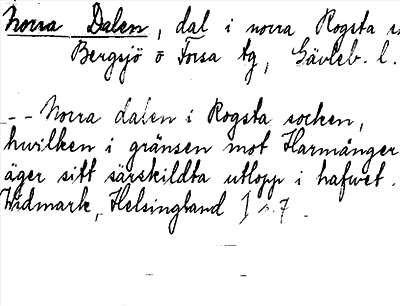 Norra Dalen, dal i norra Rogsta s
Bergsjö o Forsa tg, Gävleb. l.
-- Norra dalen i Rogsta socken,
hwilken i gränsen mot Harmånger
äger sitt särskildta utlopp i hafwet.
Widmark, Helsingland I s. 7